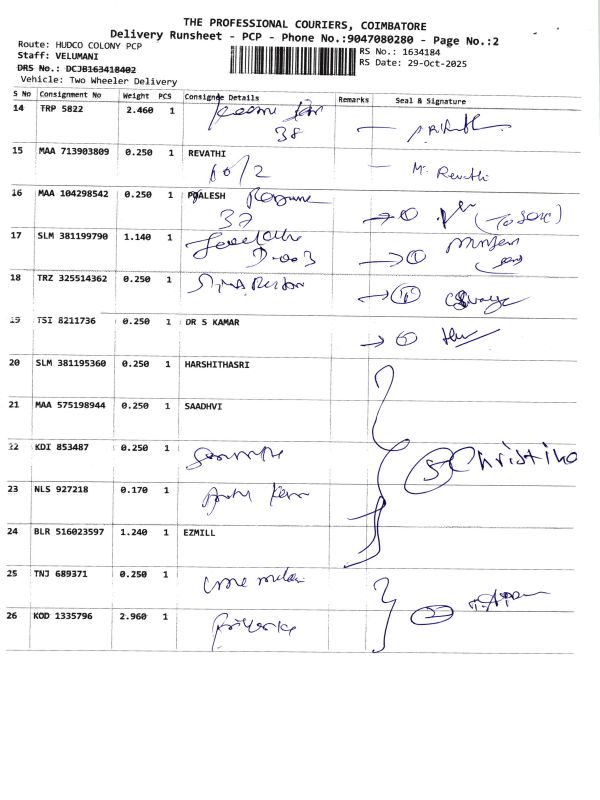 THE PROFESSIONAL COURIERS, COIMBATORE
Delivery Runsheet - PCP - Phone No.:9047080280 - Page No.:2
Route: HUDCO COLONY PCP
RS No.: 1634184
Staff: VELUMANI
RS Date: 29-Oct-2025
DRS No.: DCJB163418402
Vehicle: Two Wheeler Delivery
S No Consignment No Weight PCS Consignee Details Remarks Seal & Signature
14 TRP 5822 2.460 1
38
15 MAA 713903809 0.250 1 REVATHI M. Revathi
60/2
16 MAA 104298542 0.250 1
37
17 SLM 381199790 1.140 1
D-003
18 TRZ 325514362 0.250 1
19 TSI 8211736 0.250 1 DR S KAMAR
20 SLM 381195360 0.250 1 HARSHITHASRI
21 MAA 575198944 0.250 1 SAADHVI
22 KDI 853487 0.250 1 5 Christina
23 NLS 927218 0.170 1
24 BLR 516023597 1.240 1 EZMILL
25 TNJ 689371 0.250 1
26 KOD 1335796 2.960 1 Priyanka